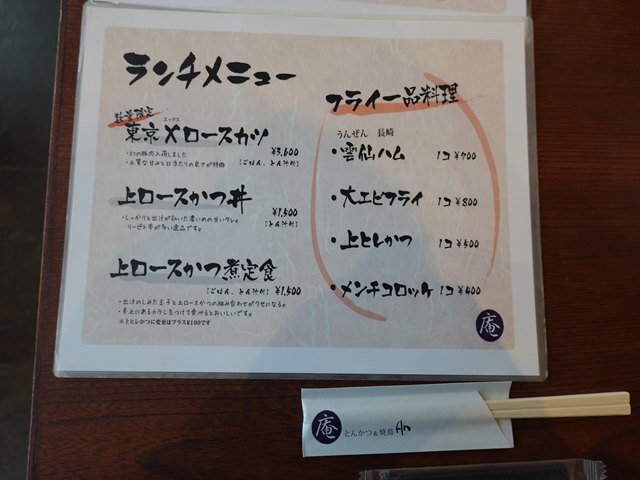 ランチメニュー
数量限定
エックス
東京Xロースカツ
¥3,600
・幻の豚肉入荷しました
・上質な甘みと口当たりの良さが特徴
[ごはん、とん汁付]
上ロースかつ丼
¥1,500
・しっかりと出汁が効いた濃いめの甘いタレ。
[とん汁付]
リーピト率が高い逸品です。
上ロースかつ煮定食
[ごはん、とん汁付] ¥1,500
・出汁のしみた玉子と上ロースかつの組み合わせがクセになる。
・卓上にあるカラシをつけて食べるとおいしいです。
※上ヒレかつに変更はプラス¥100です
フライ一品料理
うんぜん 長崎
・雲仙ハム 1コ ¥700
・大エビフライ 1コ ¥800
・上ヒレかつ 1コ ¥500
・メンチコロッケ 1コ ¥400
庵
庵 とんかつ&焼鳥 An